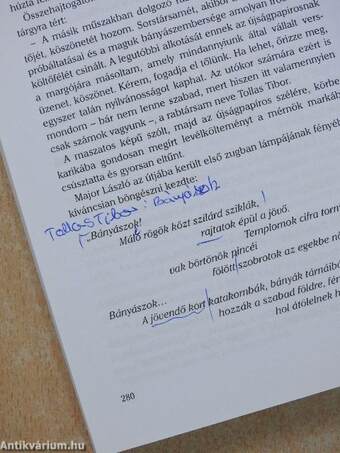 húzta le
Összehajtogatom
tárgyra tért:
– A másik műszakban dolgozó
tőjét, köszönetét hozom. Sorstársamét, akiből az
próbáltatásai és a maguk bányászembersége amolyan
költőfélét csinált. A legutóbbi alkotását ennek az újságpapirosnak
a margójára másoltam, amely mindannyiunk által vállalt vers-
üzenet, köszönet. Kérem, fogadja el tőlünk. Ha lehet, őrizze meg,
egyszer talán nyilvánosságot kaphat. Az utókor számára ezért is
mondom – bár nem lenne szabad, mert hiszen itt valamennyien
csak számok vagyunk –, a rabtársam neve Tollas Tibor.
A maszatos képű szólt, majd az újságpapíros szélére, körbe-
karikába gondosan megírt levélkölteményt a mérnök markába
csúsztatta és gyorsan eltűnt.
Major László az útjába került első zugban lámpájának fényénél
kíváncsian böngészni kezdte:
Tollas Tibor: Bányászok
„Bányászok!
Málló rögök közt szilárd sziklák,
rajtatok épül a jövő.
Templomok cifra
vak börtönök pincéi
fölött szobrotok az egekbe
Bányászok...
A jövendő kort katakombák, bányák tárnáiban
hozzák a szabad földre,
hol átölelnek
280
www.antikvarium.hu
Antikvárium.hu